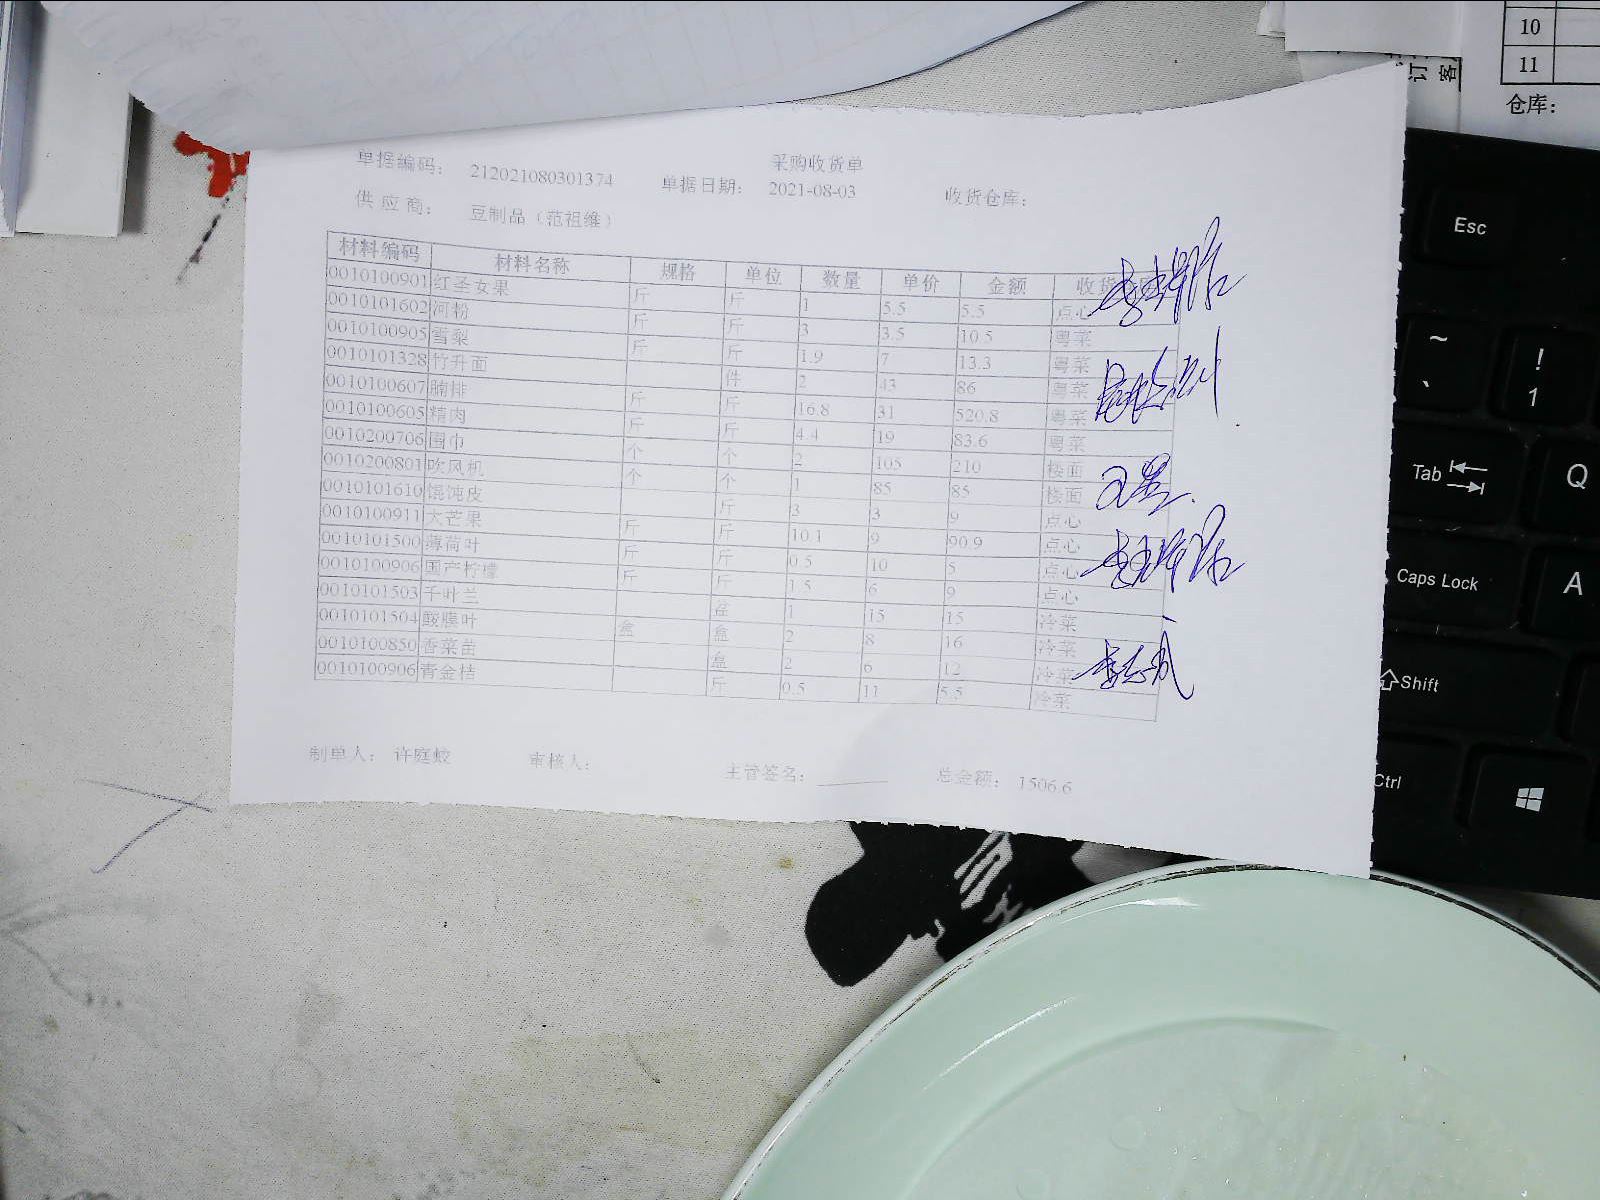 采购收货单
单据编码： 212021080301374 单据日期： 2021-08-03 收货仓库：
供 应 商： 豆制品（范祖维）
材料编码 材料名称 规格 单位 数量 单价 金额 收货
0010100901 红圣女果 斤 斤 1 5.5 5.5 点心
0010101602 河粉 斤 斤 3 3.5 10.5 粤菜
0010100905 雪梨 斤 斤 1.9 7 13.3 粤菜
0010101328 竹升面 件 2 43 86 粤菜
0010100607 腩排 斤 斤 16.8 31 520.8 粤菜
0010100605 精肉 斤 斤 4.4 19 83.6 粤菜
0010200706 围巾 个 个 2 105 210 楼面
0010200801 吹风机 个 个 1 85 85 楼面
0010101610 馄饨皮 斤 3 3 9 点心
0010100911 大芒果 斤 斤 10.1 9 90.9 点心
0010101500 薄荷叶 斤 斤 0.5 10 5 点心
0010100906 国产柠檬 斤 斤 1.5 6 9 点心
0010101503 千叶兰 盆 1 15 15 冷菜
0010101504 酸膜叶 盒 盒 2 8 16 冷菜
0010100850 香菜苗 盒 2 6 12 冷菜
0010100906 青金桔 斤 0.5 11 5.5 冷菜
制单人： 许庭蛟 审核人： 主管签名： 总金额： 1506.6
10
11
订
客
仓库：
Esc
~ ` ! 1
Tab Q
Caps Lock A
Shift
Ctrl